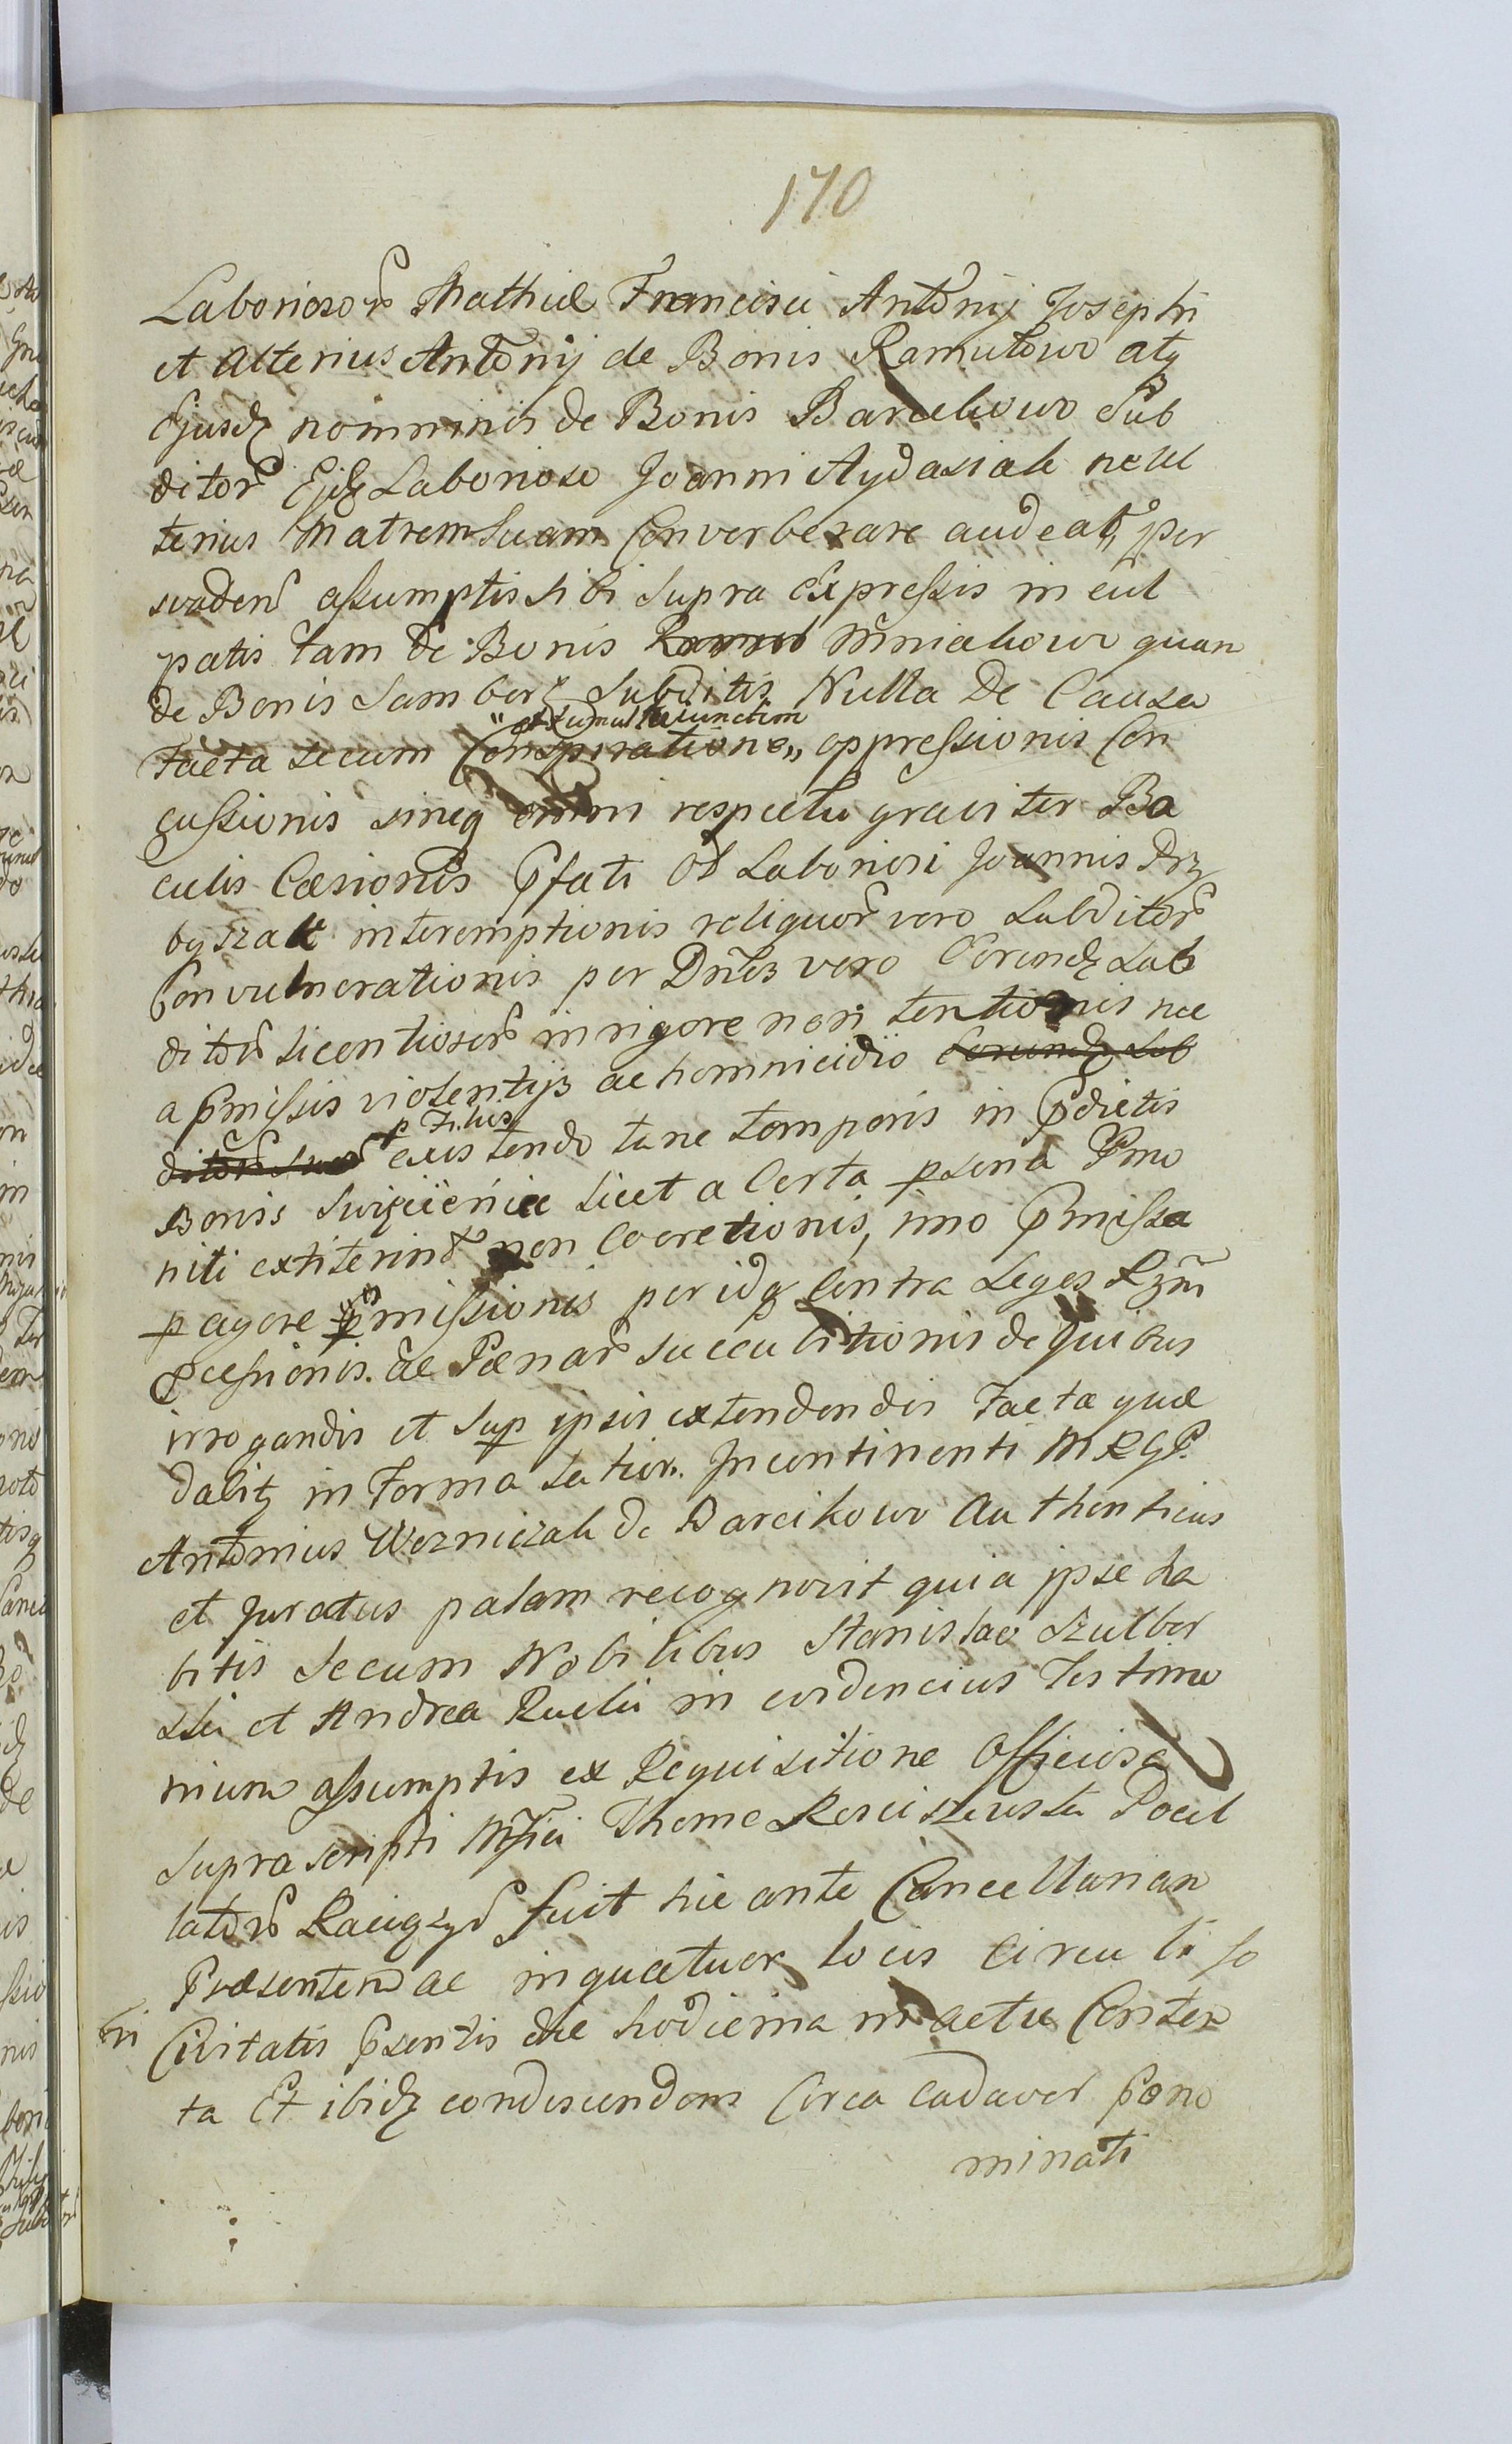 170
Laboriosor Mathiæ Francisci Antonij Josephi
et Alterius Antonij de Bonis Ramutowo atq
Ejusdꝫ nominis de Bonis Barcikowo Sub
ditor Ejdꝫ Laborioso Joanni Aydasiak ne ul
terius Matrem Suam Converberare audeat, per
svaden assumptis sibi supra expressis incul
patis tam de Bonis Miniakowo quam
de Bonis Sambors Subditis Nulla De Causa
et Tumul Adiunctim
Facta secum Conspiratione,, oppressionis Con
cussionis sineq omni respectu graviter Ba
culis Cæsionis Pfati Ol Laboriosi Joannis Prz
byszak interemptionis reliquor vero Subditor
Convulnerationis per Dnos vero Eorundꝫ Sub
ditor licentiosor in rigore non tentionis nec
a pmissis violentijs ac hommicidio Eorundꝫ Sub
p Filius
ditor Suor existendo tunc temporis in pdictis
Bonis licet a Certa psona Pmo
niti extiterint non Coercitionis, imo pmissa
p agere pmissionis per idq Contra Leges Rgni
pcessionis. ac Pænar succubitionis de quibus
irrogandis et sup ipsis extendendis Facta quæ
dalitꝫ in Forma latior. Incontinenti MRGP.
Antonius Wozniczak de Barcikowo Authenticus
et Juratus palam recognovit quia ipse ha
bitis Secum Nobilibus Stanislao Szulbor
ski et Andrea Rucki in evidencius Testimo
nium assumptis ex Requisitione Officiosa
supra scripti Mfici Thome Kosciszewski Pocil
lator Raciązs fuit hic ante Cancellariam
Præsentem ac in quatuor locis Circuli fo
ri Civitatis Psentis die hodierna in actu Conten
ta Et ibidꝫ condescendens Circa Cadaver Pæno
minati